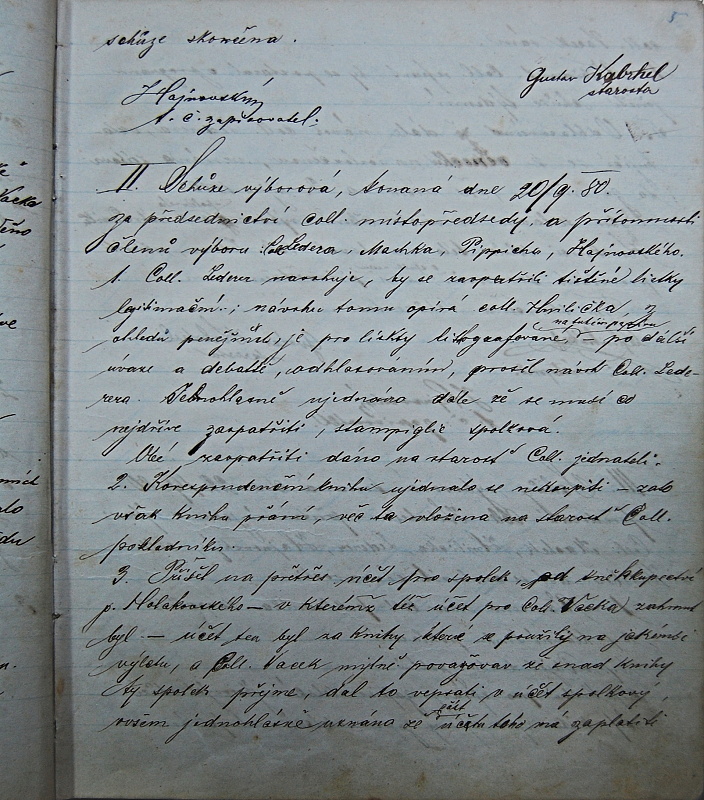 5
schůze skončena.
Gustav Kabrhel
starosta
Hajnovský
t. č. zapisovatel.
II. Schůze výborová, konaná dne 20/9. 80.
za předsednictví coll. místopředsedy, a přítomnosti
členů výboru Ledera, Machka, Pippicha, Hajnovského.
1. Coll. Lederer navrhuje, by se zaopatřili tištěné lístky
legitimační; návrhu tomu opírá coll. Hnilička, z
na tutéž
ohledů peněžních, je pro lístky litografované, – po další
úvaze a debatě, odhlasováním, prošel návrh Coll. Lede-
rera. Jednohlasně ujednáno dále že se musí co
nejdříve zaopatřiti, stampiglie spolková.
Obé zaopatřiti dáno na starost Coll. jednateli.
2. Korespondenční knihu ujednalo se nekoupiti – zato
však kniha přání, věc ta vložena na starost Coll.
pokladníku.
3. Přišel na přetřes účet pro spolek, od kněhkupectví
p. Holakovského – v kterémž též účet pro Coll. Vacka zahrnut
byl. – účet ten byl za knihy které se použily na jakémsi
výletu, a Coll. Vacek mylně považoval že snad knihy
ty spolek přijme, dal to vepsati v účet spolkový,
část
ovšem jednohlasně uznáno že účtu toho má zaplatiti